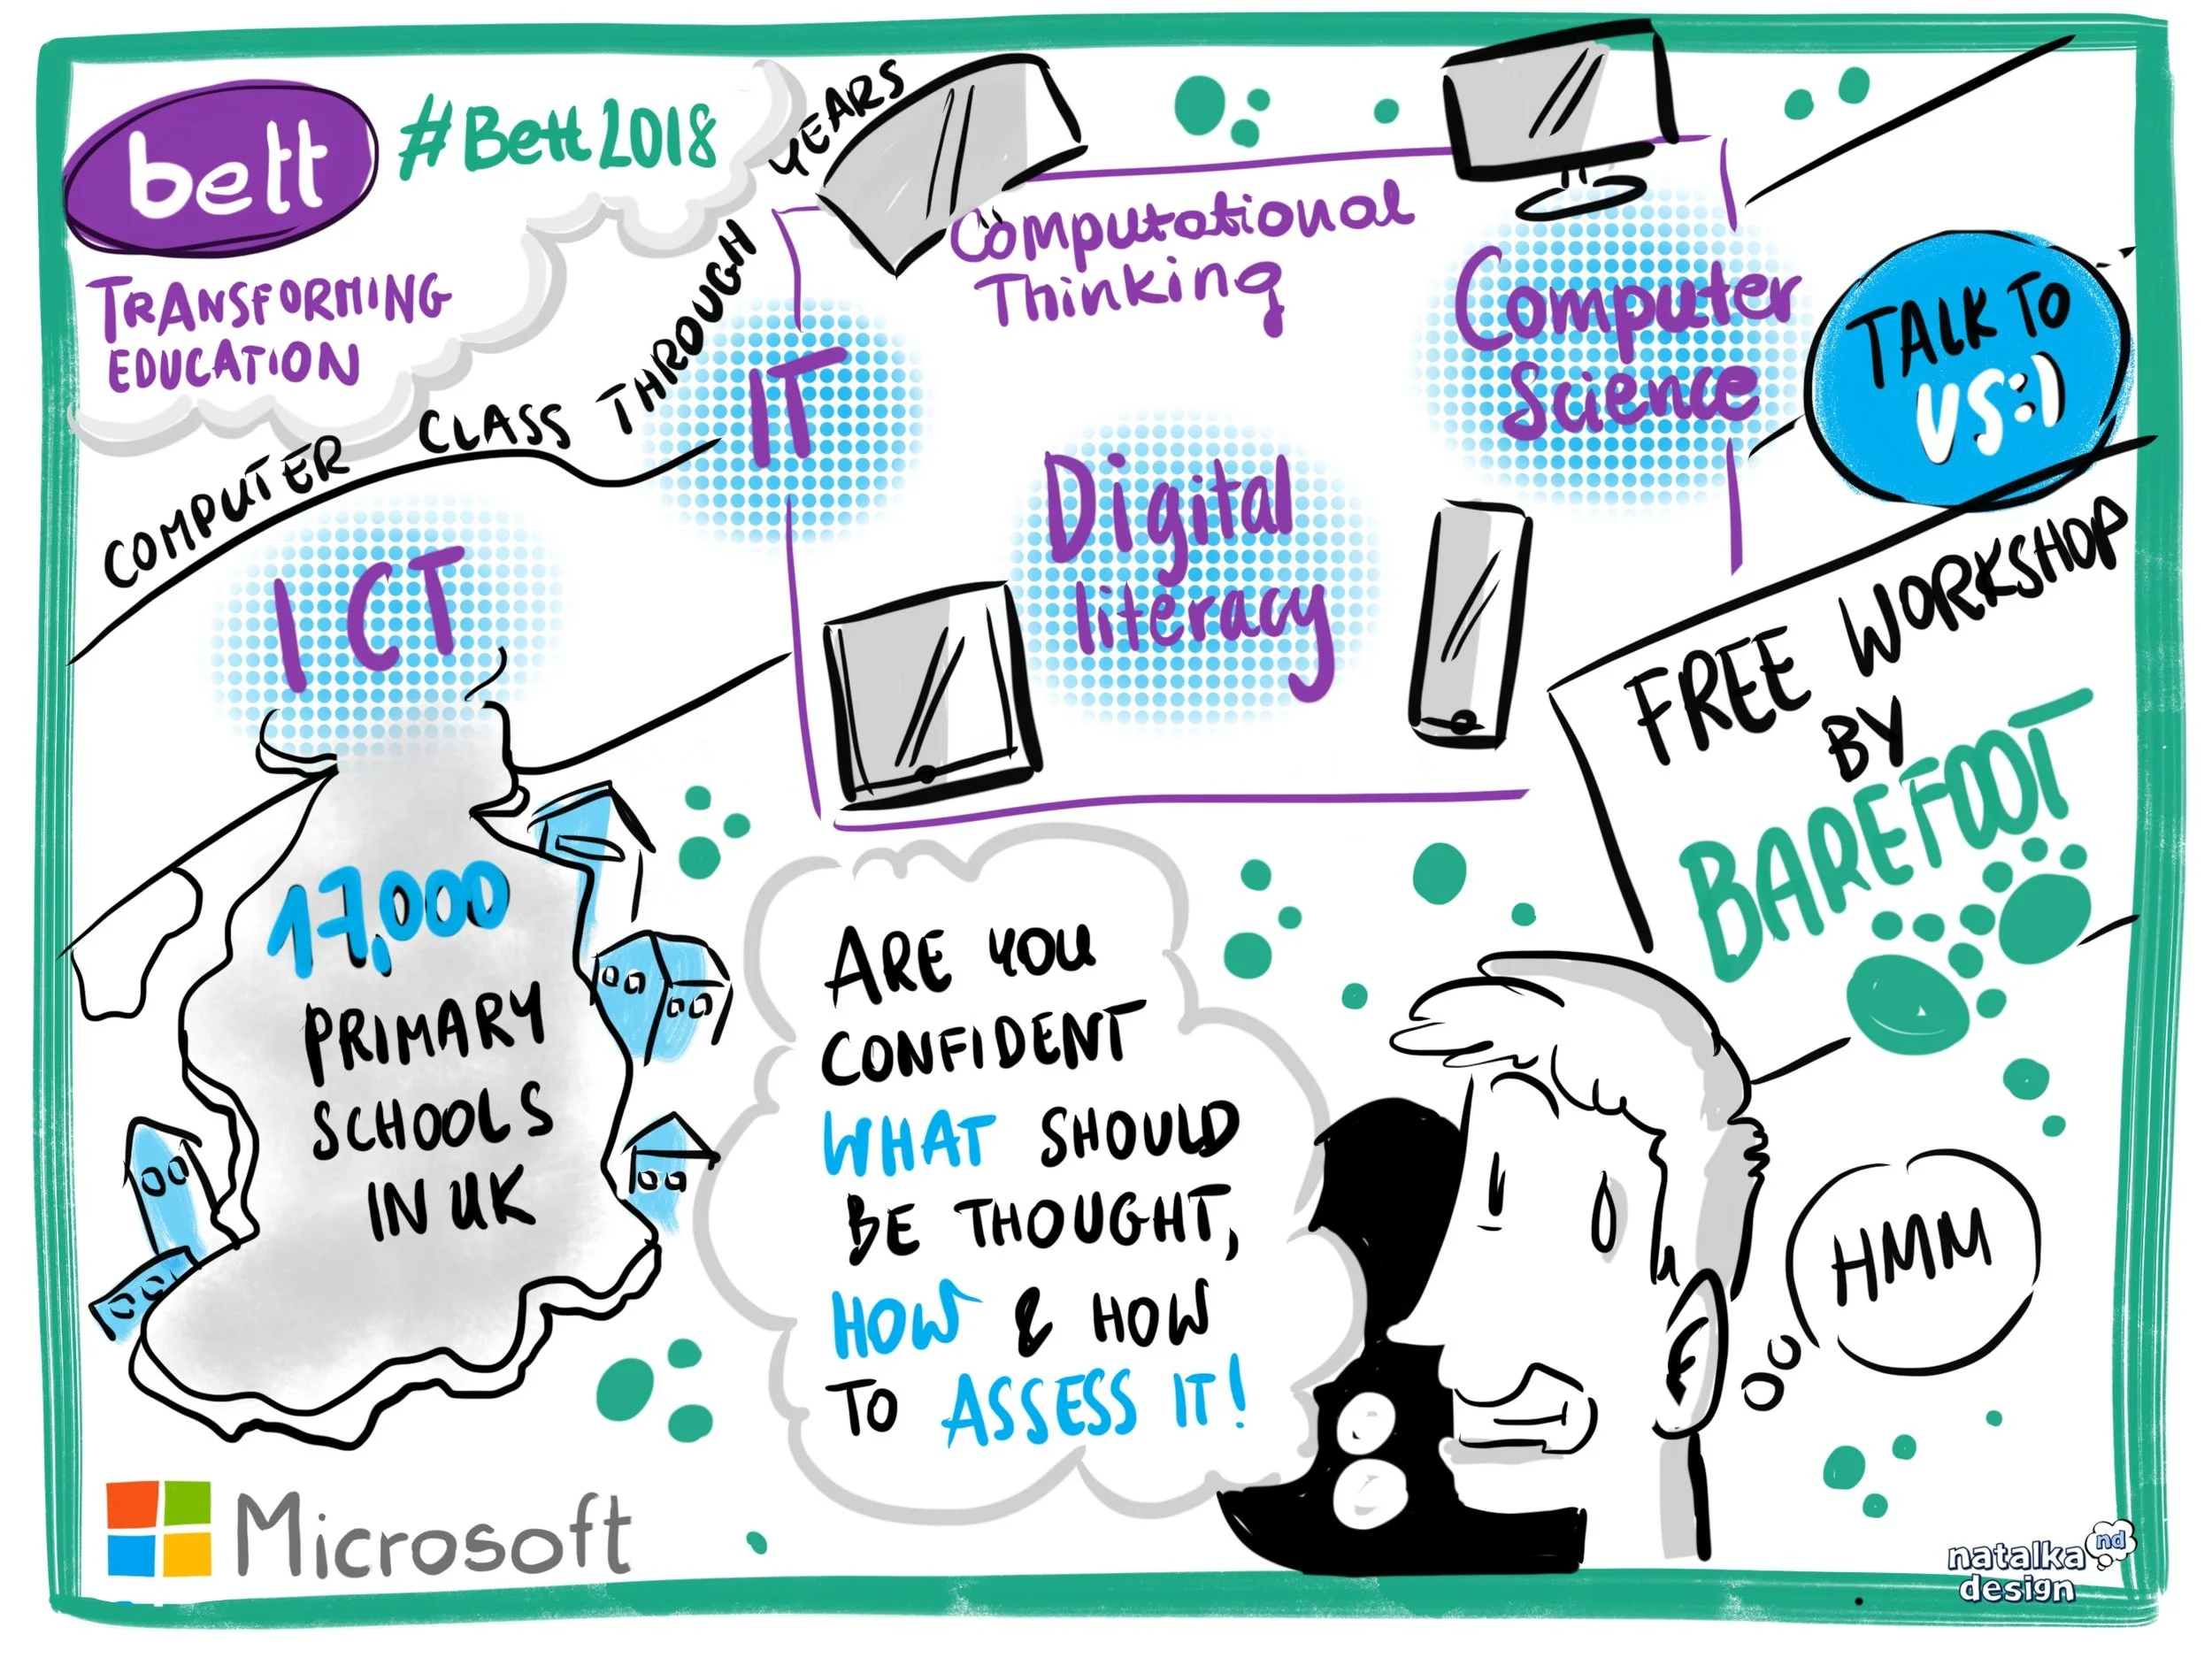 bett
#Bett2018
TRANSFORMING
EDUCATION
COMPUTER CLASS THROUGH YEARS
ICT
IT
Computational
Thinking
Computer
Science
Digital
literacy
TALK TO
US:)
FREE WORKSHOP
BY
BAREFOOT
17,000
PRIMARY
SCHOOLS
IN UK
ARE YOU
CONFIDENT
WHAT SHOULD
BE THOUGHT,
HOW & HOW
TO ASSESS IT!
HMM
Microsoft
natalka
nd
design